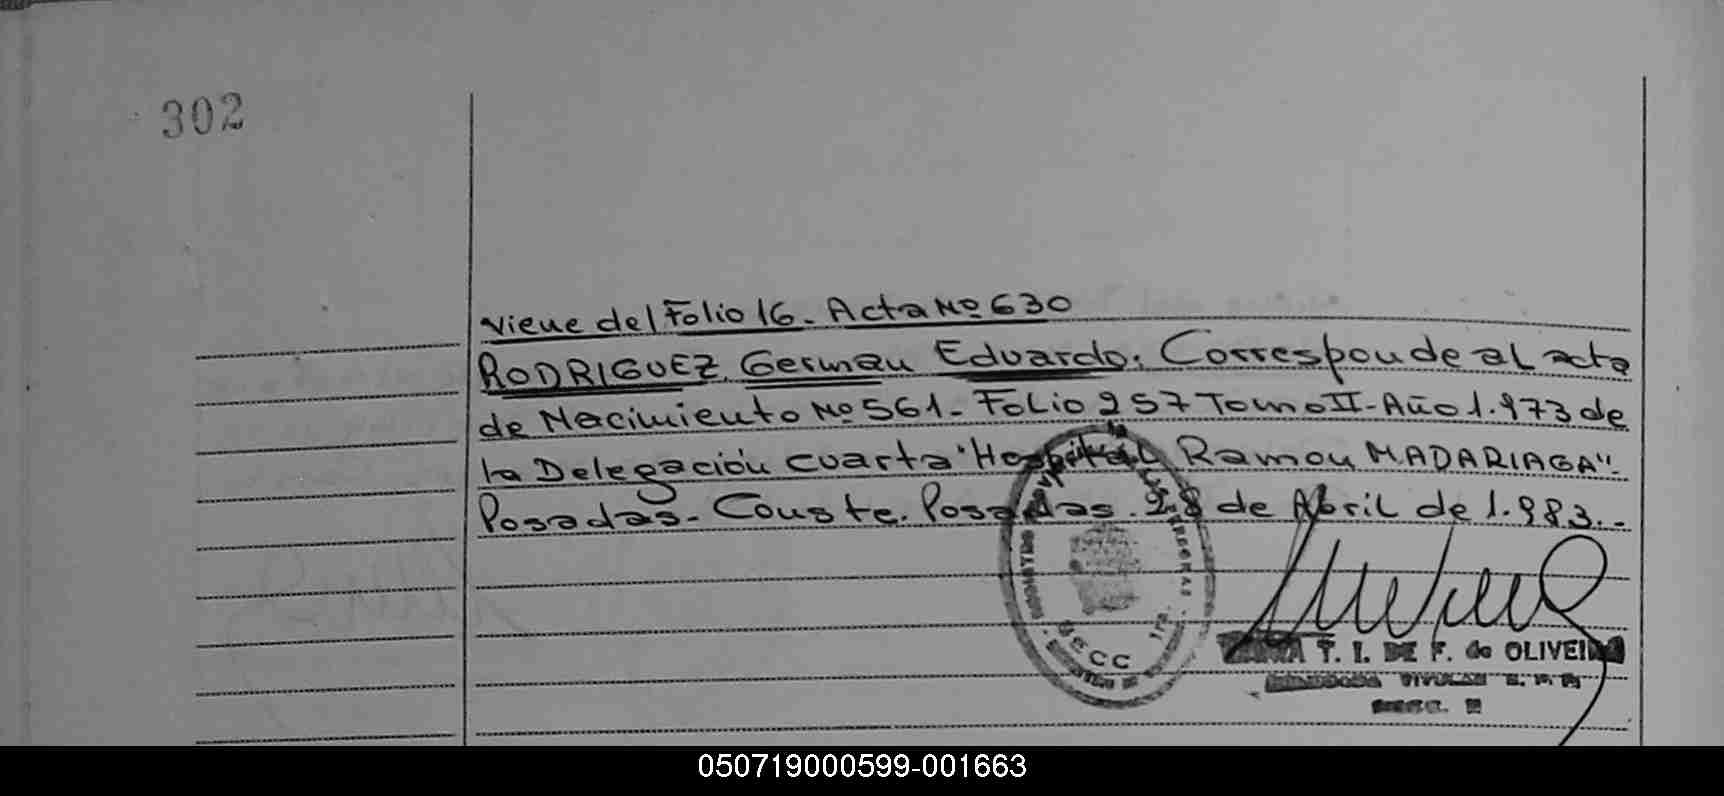 302
Viene del Folio 16. Acta Nº 630
RODRIGUEZ, German Eduardo: Corresponde al acta
de Nacimiento Nº 561 - Folio 257 Tomo II - Año 1.973 de
la Delegación cuarta "Hospital Ramon MADARIAGA".
Posadas.- Conste. Posadas. 28 de Abril de 1.983.-
T. I. DE F. de OLIVEIRA
SECC. 1ra.
050719000599-001663